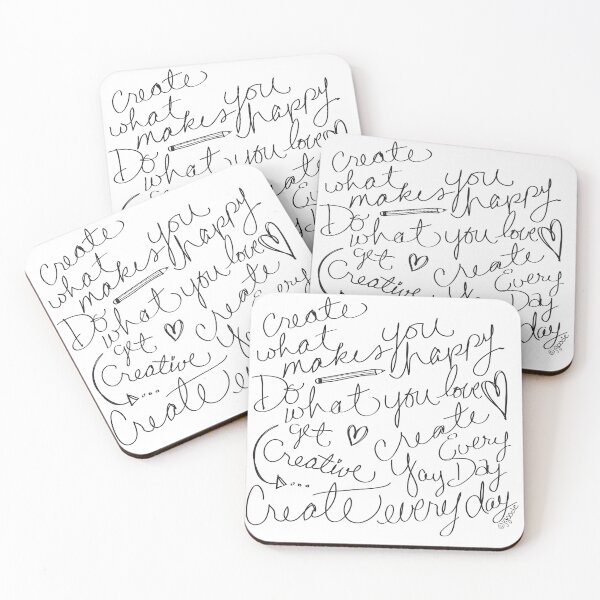 Create
what
makes you
happy
Do
what you love
Create
what
makes you
happy
Do
what you love
get
Create
Every
Day
Creative
day
Create
what
makes you
happy
Do
what you love
get
Create
Every
Creative
Create every
Create
what
makes you
happy
Do
what you love
get
Create
Every
Creative
Yay Day
Create every day